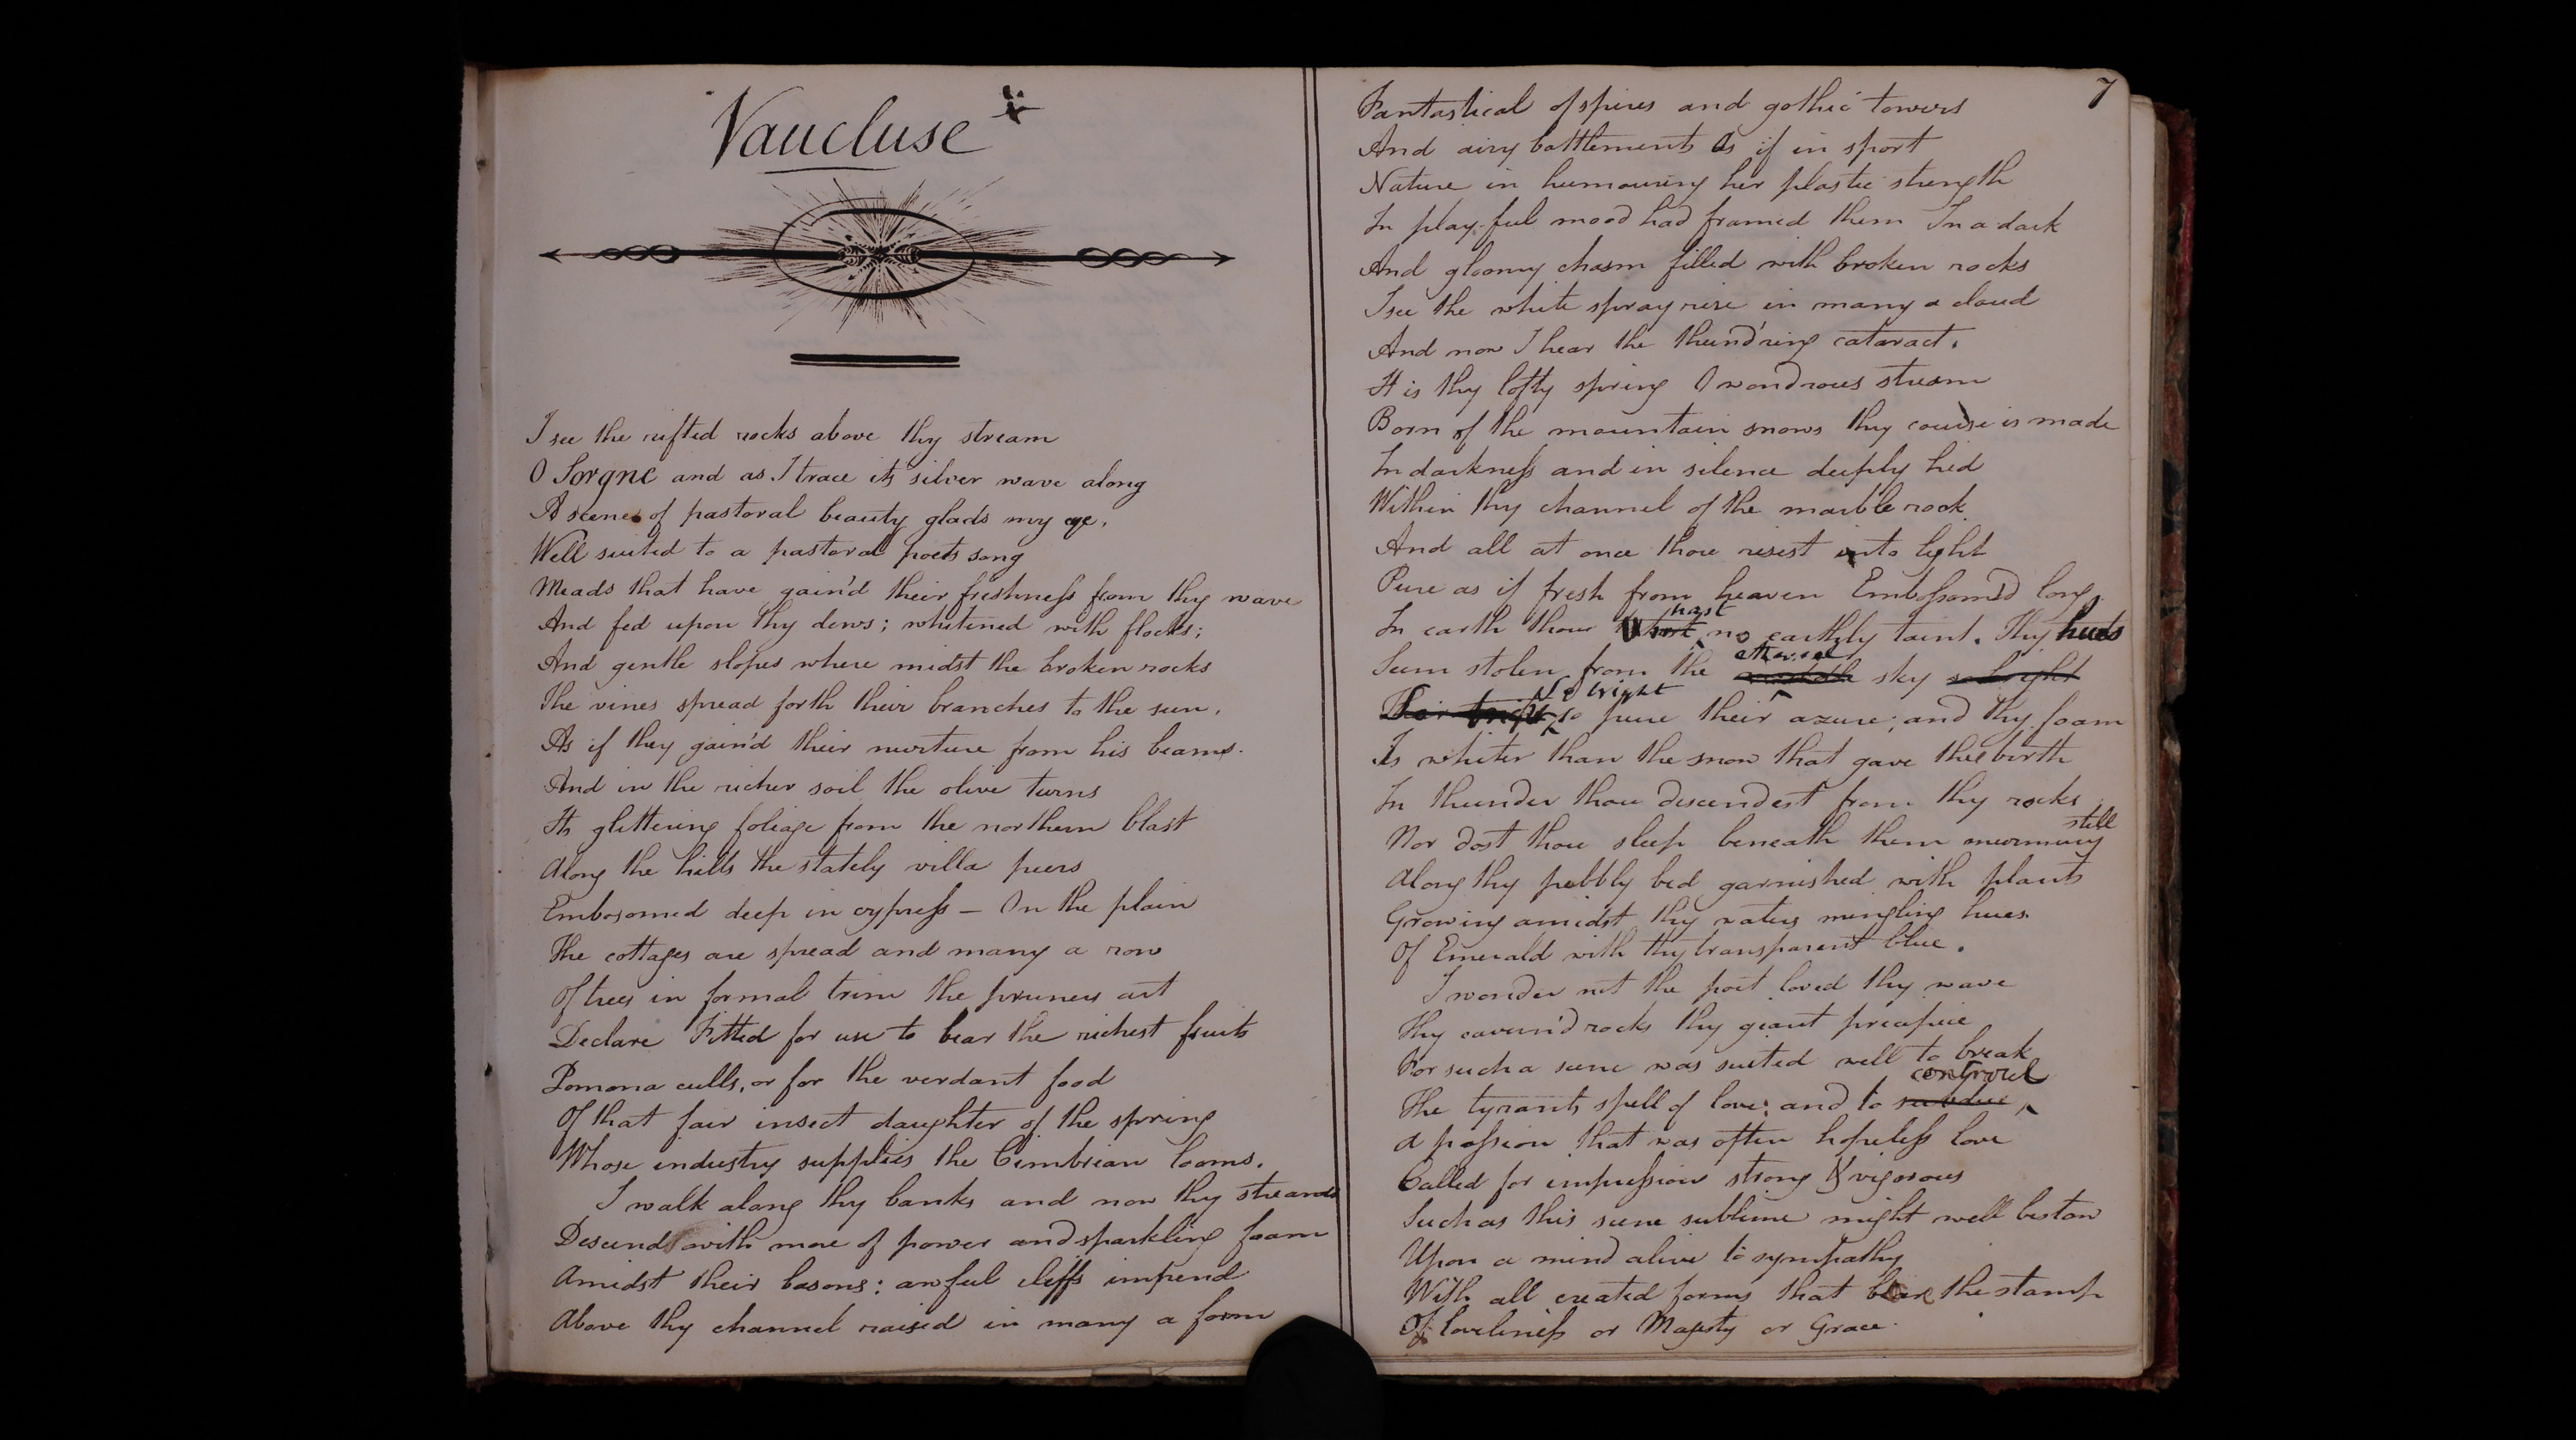 Vaucluse
I see the rifted rocks above thy stream
O Sorgne and as I trace its silver wave along
A scene of pastoral beauty glads my eye,
Well suited to a pastoral poets song
Meads that have gain'd their freshness from thy wave
And fed upon thy dews; whitened with flocks;
And gentle slopes where midst the broken rocks
The vines spread forth their branches to the sun,
As if they gain'd their nurture from his beams.
And in the richer soil the olive turns
Its glittering foliage from the northern blast
Along the hills the stately villa peers
Embosomed deep in cypress – On the plain
The cottages are spread and many a row
Of trees in formal trim the pruners art
Declare Fitted for use to bear the richest fruits
Pomona culls, or for the verdant food
Of that fair insect daughter of the spring
Whose industry supplies the Cimbrian looms.
I walk along thy banks and now thy streams
Descend with more of power and sparkling foam
Amidst their basons: awful cliffs impend
Above thy channel raised in many a form
7
Fantastical of spires and gothic towers
And airy battlements As if in sport
Nature in humouring her plastic strength
In play-ful mood had framed them In a dark
And gloomy chasm filled with broken rocks
I see the white spray rise in many a cloud
And now I hear the thund'ring cataract.
It is thy lofty spring O wondrous stream
Born of the mountain snows thy course is made
In darkness and in silence deeply hid
Within thy channel of the marble rock
And all at once thou risest into light
Pure as if fresh from heaven Embossomed long
hast
In earth thou no earthly taint. Thy hues
ethereal
Seem stolen from the sky so bright
So bright
Their so pure their azure; and thy foam
Is whiter than the snow that gave thee birth
In thunder thou descendest from thy rocks
still
Nor dost thou sleep beneath them murmuring
Along thy pebbly bed garnished with plants
Growing amidst thy waters mingling hues
Of Emerald with thy transparent blue.
I wonder not the poet loved thy wave
Thy cavern'd rocks thy giant precipice
For such a scene was suited well to break
controul
The tyrants spell of love; and to subdue
A passion that was often hopeless love
Called for impression strong & vigorous
Such as this scene sublime might well bestow
Upon a mind alive to sympathy
With all created forms that bear the stamp
Of loveliness or Majesty or Grace.